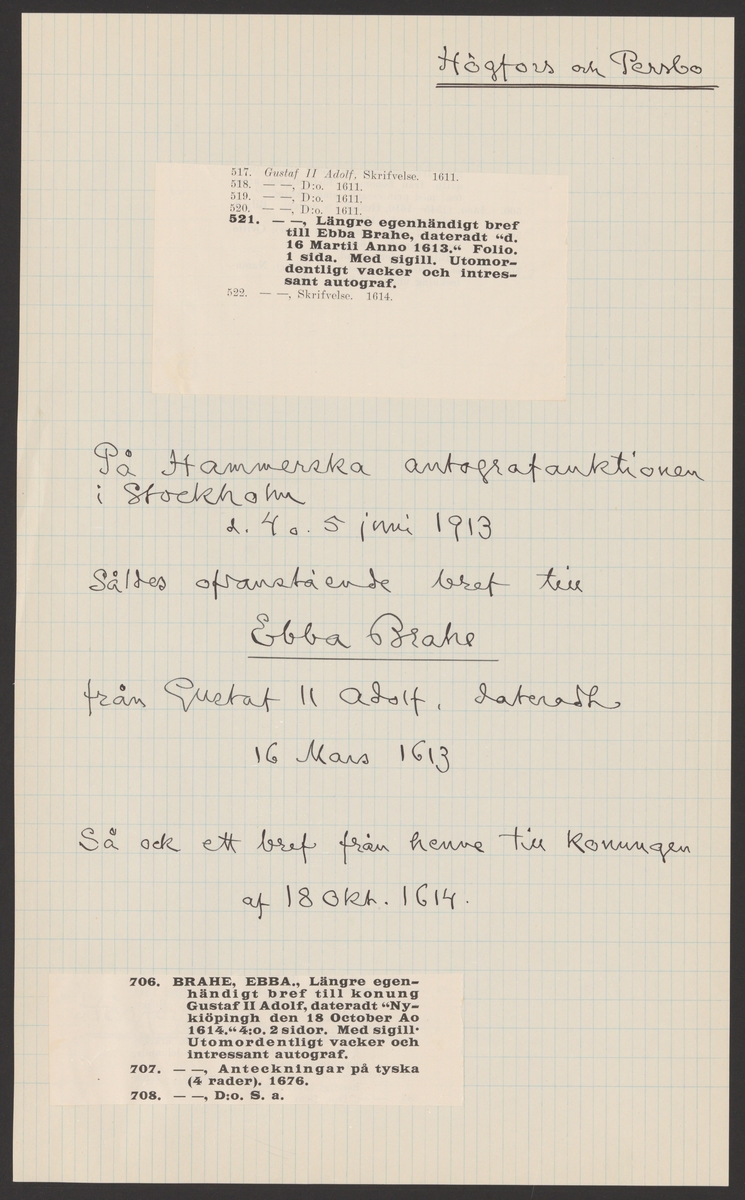 Högfors och Persbo
517. Gustaf II Adolf, Skrifvelse. 1611.
518. — —, D:o. 1611.
519. — —, D:o. 1611.
520. — —, D:o. 1611.
521. — —, Längre egenhändigt bref
till Ebba Brahe, dateradt “d.
16 Martii Anno 1613.“ Folio.
1 sida. Med sigill. Utomor-
dentligt vacker och intres-
sant autograf.
522. — —, Skrifvelse. 1614.
På Hammerska autografauktionen
i Stockholm
d. 4 o. 5 juni 1913
Såldes ofvanstående bref till
Ebba Brahe
från Gustaf II Adolf, dateradt
16 Mars 1613
Så ock ett bref från henne till Konungen
af 18 Okt. 1614.
706. BRAHE, EBBA., Längre egen-
händigt bref till konung
Gustaf II Adolf, dateradt “Ny-
kiöpingh den 18 October Ao
1614.“ 4:o. 2 sidor. Med sigill.
Utomordentligt vacker och
intressant autograf.
707. — —, Anteckningar på tyska
(4 rader). 1676.
708. — —, D:o. S. a.